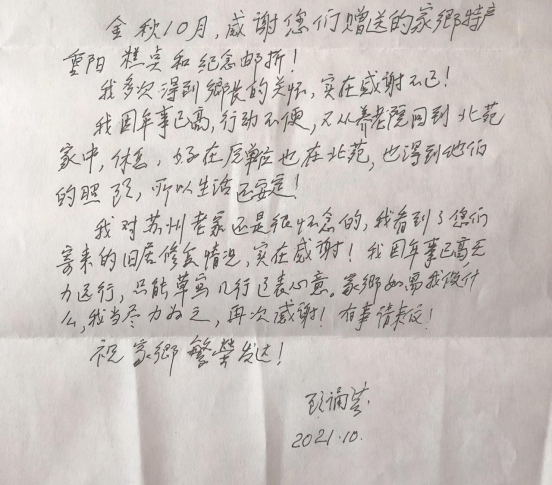 金秋10月，感谢您们赠送的家鄉特产
重阳糕桌和纪念邮折！
我多次得到鄉长的关怀，实在感谢不已！
我因年事已高，行动不便，又从养老院回到北苑
家中，休息，好在原单位也在北苑，也得到他们
的照顾，所以生活还安定！
我对苏州老家还是很怀念的，我看到了您们
寄来的旧居修复情况，实在感谢！我因年事已高无
力远行，只能草写几行之表心意。家鄉如需我做什
么，我当尽力为之，再次感谢！有事请来仪！
祝家鄉繁荣发达！
顾诵芬
2021.10.